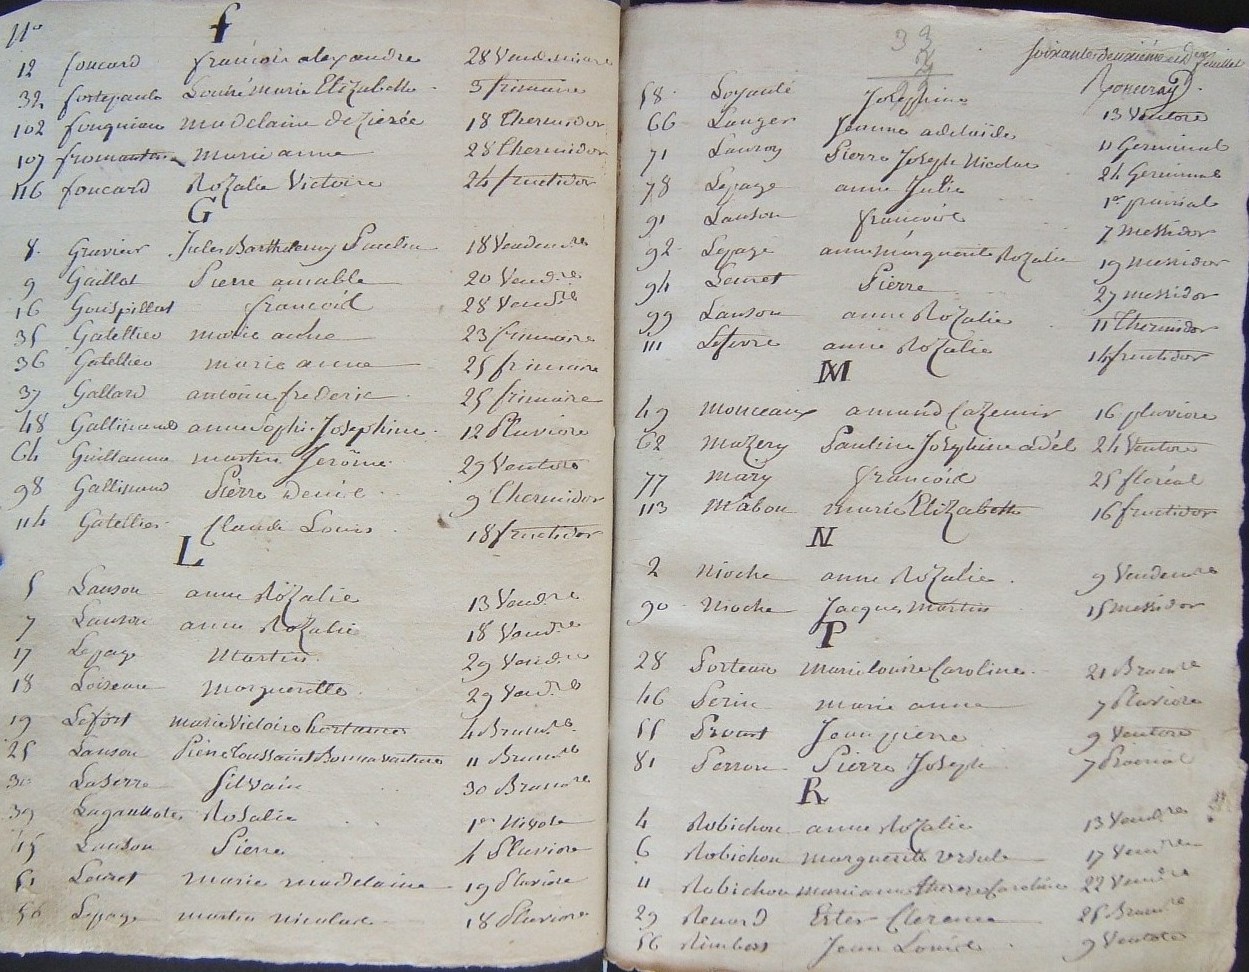 11º
f
12 foucard françois alexandre 28 Vendemiaire
32 Louise Marie Elizabette 3 frimaire
102 fouquiau madelaine deziérée 18 Thermidor
107 marie anne 28 Thermidor
116 foucard Rozalie Victoire 24 fructidor
G
8 Gravier Jules Barthelemy Paulin 18 Vendemre
9 Gaillot Pierre amable 20 Vendre
16 Gouspillot francois 28 Vendre
35 Gatellier marie anne 23 frimaire
36 Gatellier marie anne 25 frimaire
37 Gallard antoine frederic 25 frimaire
48 Gallinand anne Sophie Josephine 12 Pluviose
64 Guillaume martin Jerôme 29 Ventose
98 Gallinand Pierre Denis 9 Thermidor
114 Gatellier Claude Louis 18 fructidor
L
5 Lanson anne Rozalie 13 Vendre
7 Lanson anne Rozalie 18 Vendre
17 Lepage Martin 29 Vendre
18 Loiseau Marguerite 29 Vendre
19 Lefort marie Victoire hortance 4 Brumre
25 Lanson Pierre Toussaint Bonnaventure 11 Brumre
30 Laserre Silvain 30 Brumre
39 Rosalie 1er Nivose
45 Lanson Pierre 4 Pluviose
51 Louret marie madelaine 19 Pluviose
56 Lepage martin nicolas 18 Pluviose
32
soixante deuxième et Dre feuillet
58 Loyauté Josephine 13 Ventose
66 Lauger Jeanne adelaïde 11 Germinal
71 Lauroy Pierre Joseph Nicolas 24 Germinal
78 Lepage anne Julie 1er prairial
91 Lanson francoise 7 messidor
92 Lepage anne marguerite Rozalie 19 messidor
94 Louret Pierre 27 messidor
99 Lanson anne Rozalie 11 Thermidor
111 Lefevre anne Rozalie 14 fructidor
M
49 Monceaux amand Cazemir 16 pluviose
62 Mazery Pauline Josephine adel 24 Ventose
77 Mary francois 25 floréal
113 Mabou marie Elizabette 16 fructidor
N
2 Nioche anne Rozalie 9 Vendemre
90 Nioche Jacques Martin 15 messidor
P
28 Porteau marie louise Caroline 21 Brumre
46 Perin marie anne 7 Pluviose
55 Prout Jean pierre 9 Ventose
81 Perron Pierre Joseph 7 Prairial
R
4 Robichon anne Rozalie 13 Vendre
6 Robichon marguerite ursule 17 Vendre
11 Robichon marie anne therese Caroline 22 Vendre
29 Renard Ester Clemence 25 Brumre
56 Rimbert Jean Louis 9 Ventose